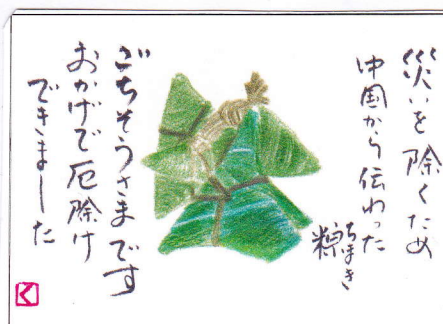 災いを除くため
中国から伝わった
ちまき
粽
ごちそうさまです
おかげで厄除け
できました
く